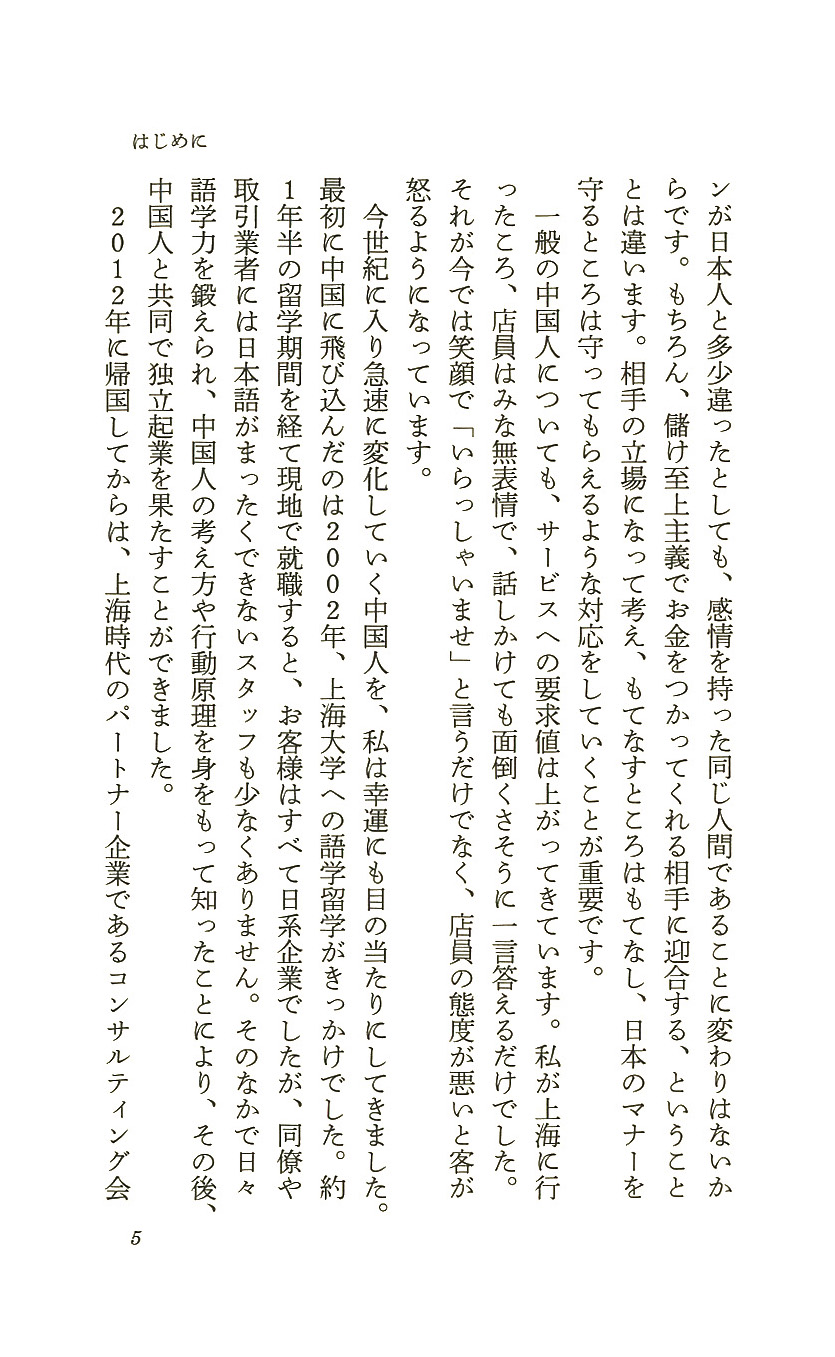 はじめに
ンが日本人と多少違ったとしても、感情を持った同じ人間であることに変わりはないか
らです。もちろん、儲け至上主義でお金をつかってくれる相手に迎合する、ということ
とは違います。相手の立場になって考え、もてなすところはもてなし、日本のマナーを
守るところは守ってもらえるような対応をしていくことが重要です。
一般の中国人についても、サービスへの要求値は上がってきています。私が上海に行
ったころ、店員はみな無表情で、話しかけても面倒くさそうに一言答えるだけでした。
それが今では笑顔で「いらっしゃいませ」と言うだけでなく、店員の態度が悪いと客が
怒るようになっています。
今世紀に入り急速に変化していく中国人を、私は幸運にも目の当たりにしてきました。
最初に中国に飛び込んだのは2002年、上海大学への語学留学がきっかけでした。約
1年半の留学期間を経て現地で就職すると、お客様はすべて日系企業でしたが、同僚や
取引業者には日本語がまったくできないスタッフも少なくありません。そのなかで日々
語学力を鍛えられ、中国人の考え方や行動原理を身をもって知ったことにより、その後、
中国人と共同で独立起業を果たすことができました。
2012年に帰国してからは、上海時代のパートナー企業であるコンサルティング会
5